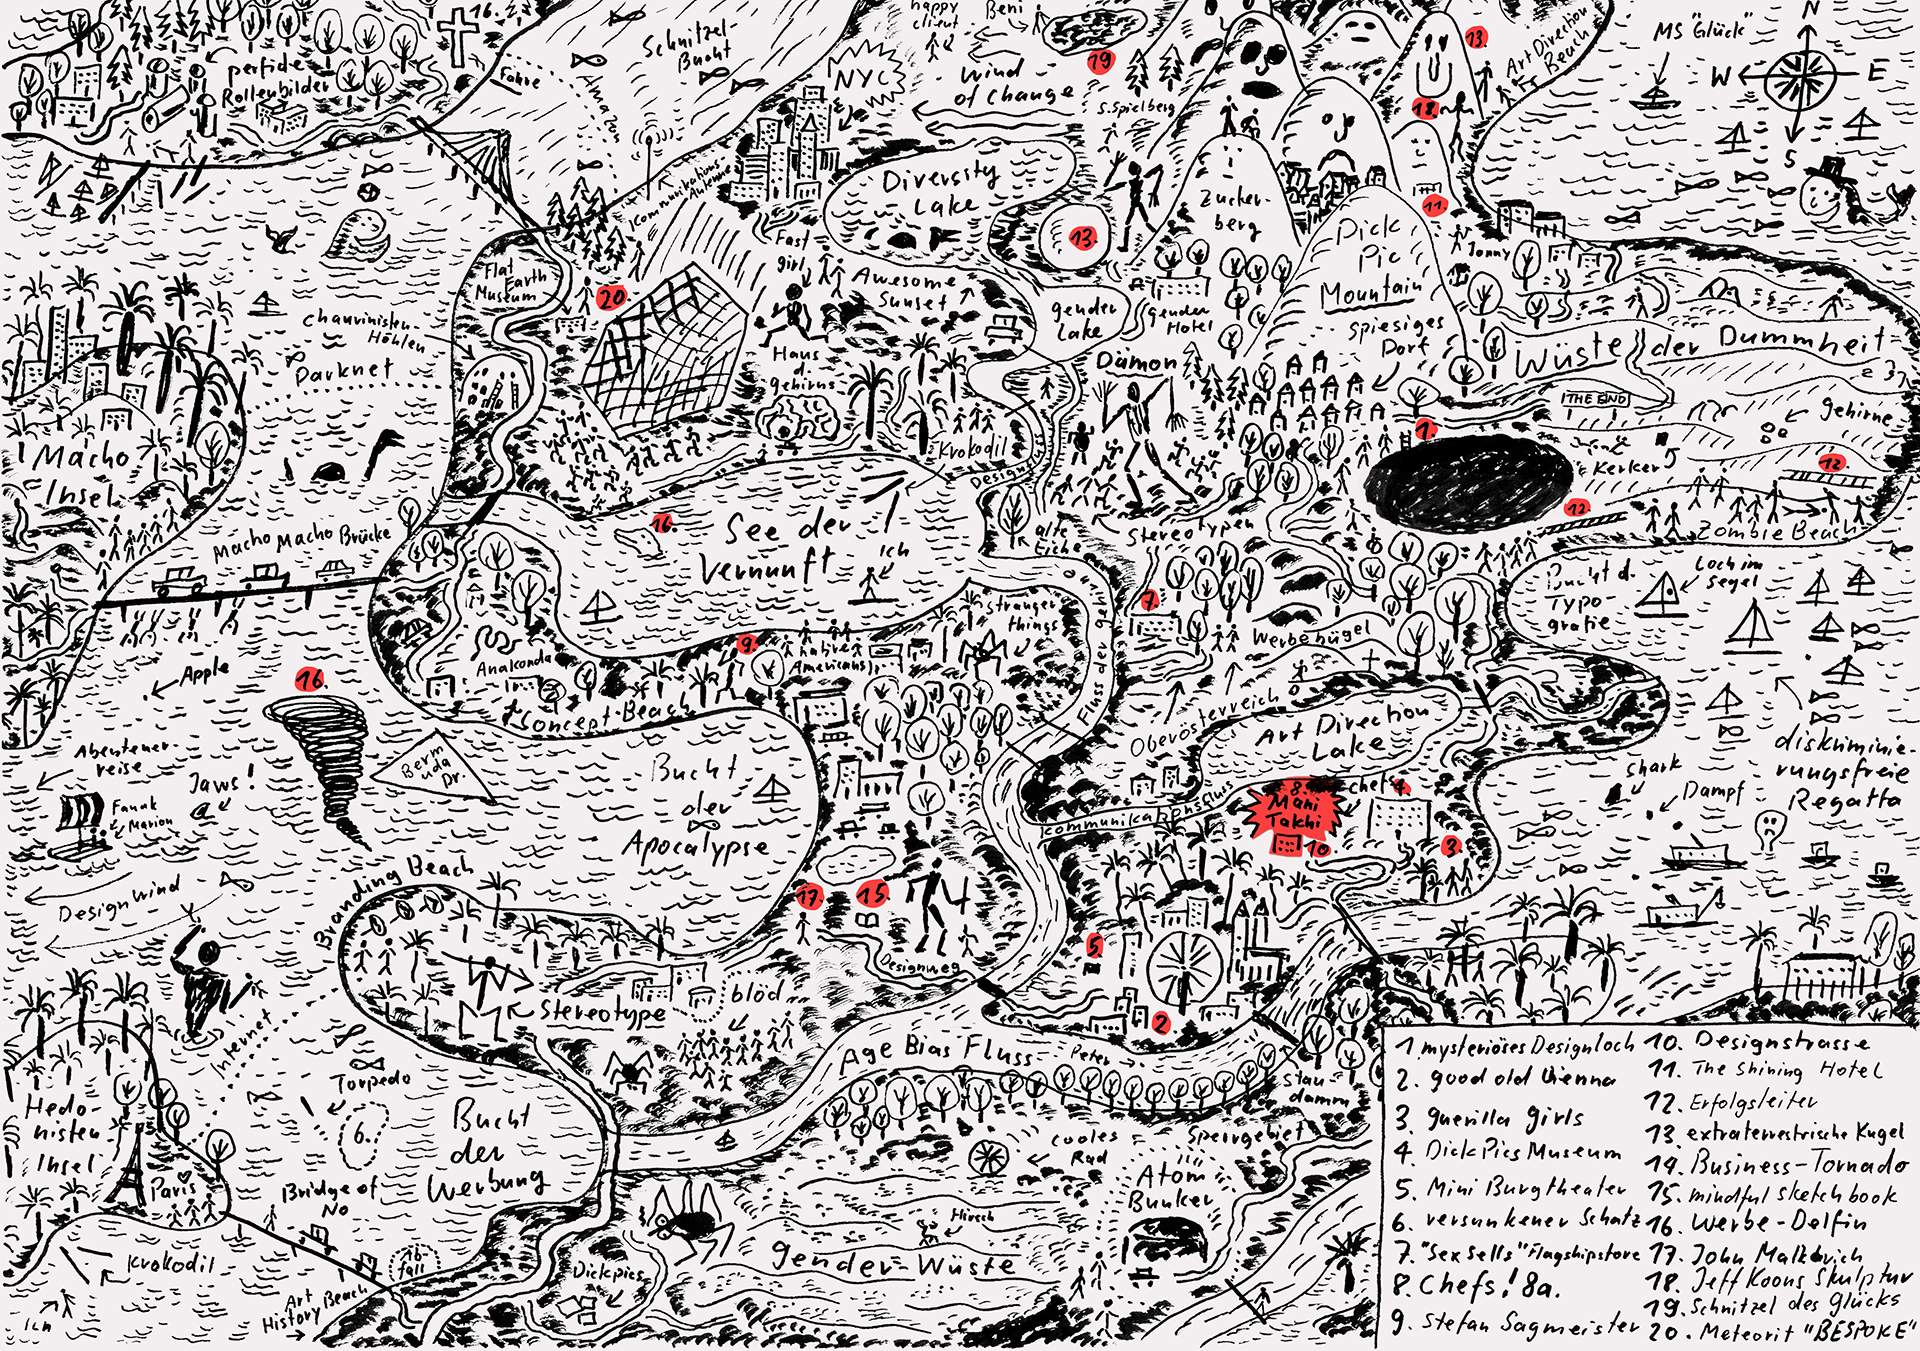 16.
Fähre
Schnitzel-
Bucht
Amazon
perfide
Rollenbilder
happy
client
Beni
19
NYC
wind
of change
S. Spielberg
13.
18.
Art Direction
Beach
MS "Glück"
N
W
E
S
Kommunikations
Antenne
Diversity
Lake
13.
Zucker-
berg
11.
Dick
Pic
Mountain
Jonny
Flat
Earth
Museum
20
Fast
girl
Awesome
Sunset
gender
Lake
gender
Hotel
Chauvinisten-
Höhlen
Darknet
Haus
d.
gehirns
Dämon
spiesiges
Dorf
Wüste der Dummheit
THE END
gehirne
Macho
Insel
Krokodil
1.
Kerker
12
12.
Zombie Beach
Macho Macho Brücke
16.
See der
Vernunft
ich
alte
Eiche
Stereotypen
Bucht d.
Typo-
grafie
Loch im
Segel
7.
Werbehügel
stranger
things
Fluss der
9.
native
Americans
Anaconda
Concept-Beach
Apple
16.
Abenteuer-
reise
Jaws!
Berm
uda
Dr.
Bucht
der
Apocalypse
Oberösterreich
Art Direction
Lake
Kommunikationsfluss
8.
Mani
Takhi
10
chefs
3.
diskriminie-
rungsfreie
Regatta
shark
Dampf
Marion
Design Wind
Branding Beach
17.
15.
Designweg
5
2.
Stereotype
blöd
Internet
Torpedo
6.
Age Bias Fluss
Peter
Stau-
damm
Hedo-
nisten
Insel
Paris
Bucht
der
Werbung
Bridge of
No
cooles
Rad
Sperrgebiet
Atom
Bunker
Hirsch
Gender-Wüste
Krokodil
ich
Art
History Beach
Dickpics
1 mysteriöses Designloch
2. good old Vienna
3 guerilla girls
4. DickPics Museum
5. Mini Burgtheater
6. versunkener Schatz
7. "Sex Sells" Flagshipstore
8. Chefs! 8a.
9. Stefan Sagmeister
10. Designstrasse
11. The Shining Hotel
12. Erfolgsleiter
13. extraterrestrische Kugel
14. Business-Tornado
15. mindful sketchbook
16. Werbe-Delfin
17. John Malkovich
18. Jeff Koons Skulptur
19. Schnitzel des Glücks
20. Meteorit "BESPOKE"